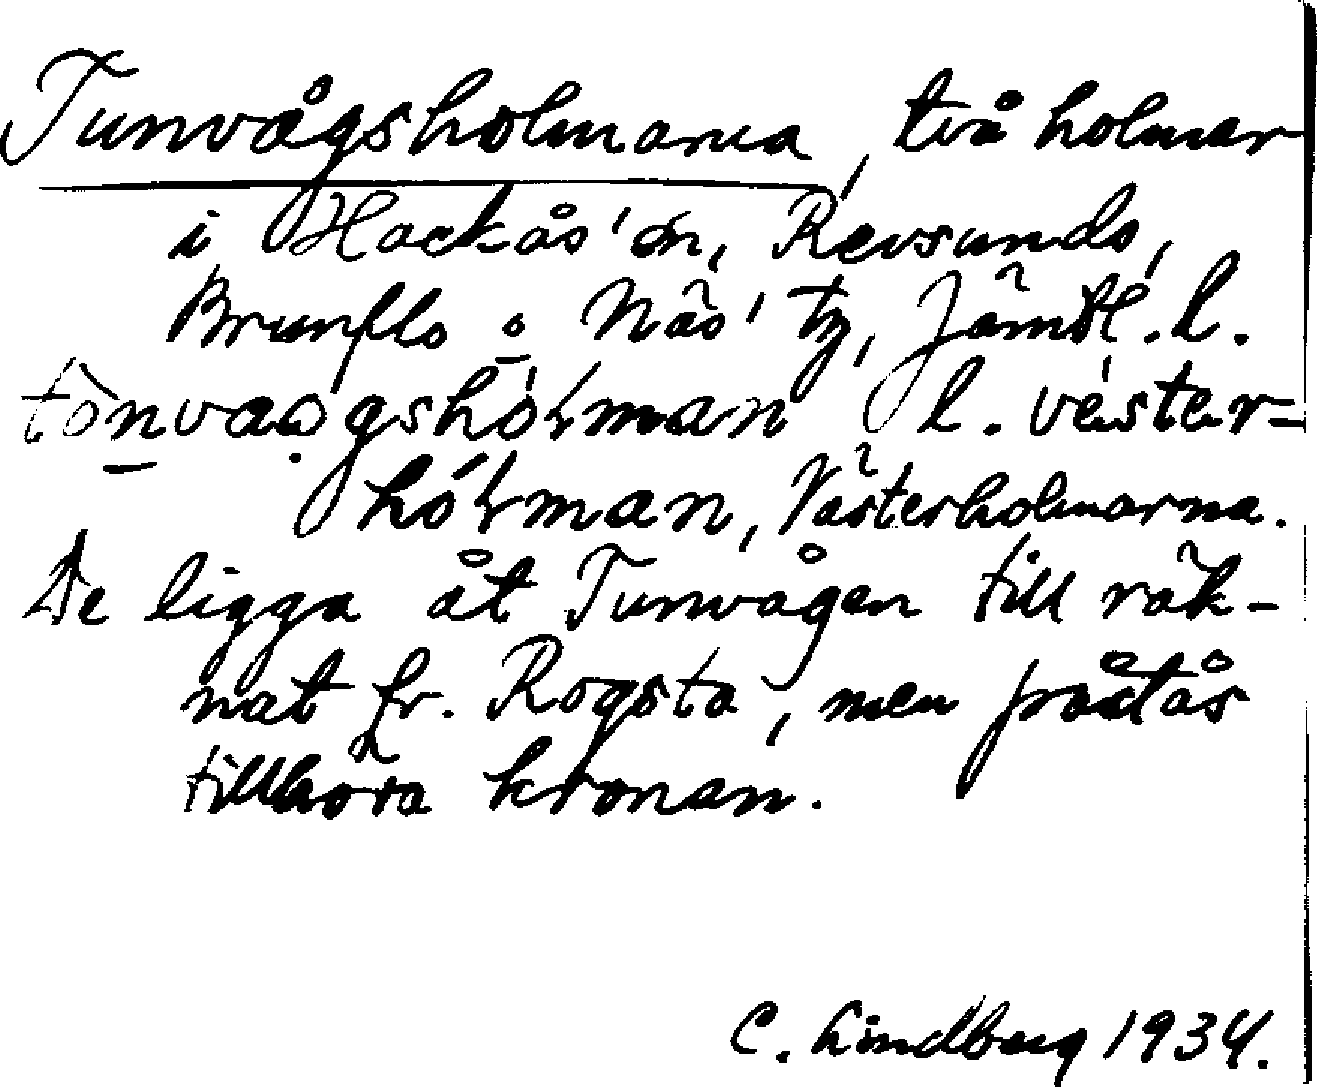 Tunvågsholmarna, två holmar
i Hackås' sn, Revsunds,
Brunflo o Näs' tg, Jämtl. l.
l. vester-
hólman, Västerholmarna.
De ligga åt Tunvågen till räk-
nat fr. Rogsta, men påstås
tillhöra kronan.
C. Lindberg 1934.